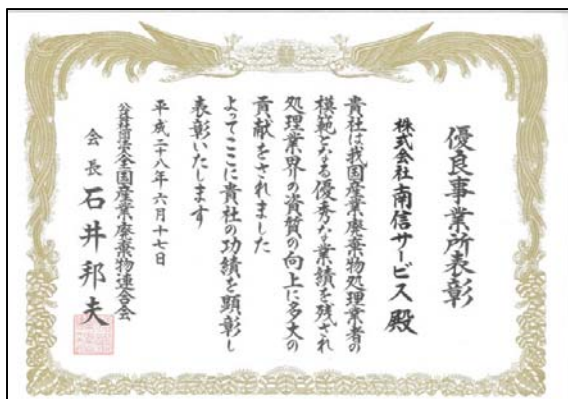 優良事業所表彰
株式会社南信サービス殿
貴社は我国産業廃棄物処理業者の
模範となる優秀な業績を残され
処理業界の資質の向上に多大の
貢献をされました
よってここに貴社の功績を顕彰し
表彰いたします
平成二十八年六月十七日
公益社団法人全国産業廃棄物連合会
会長石井邦夫